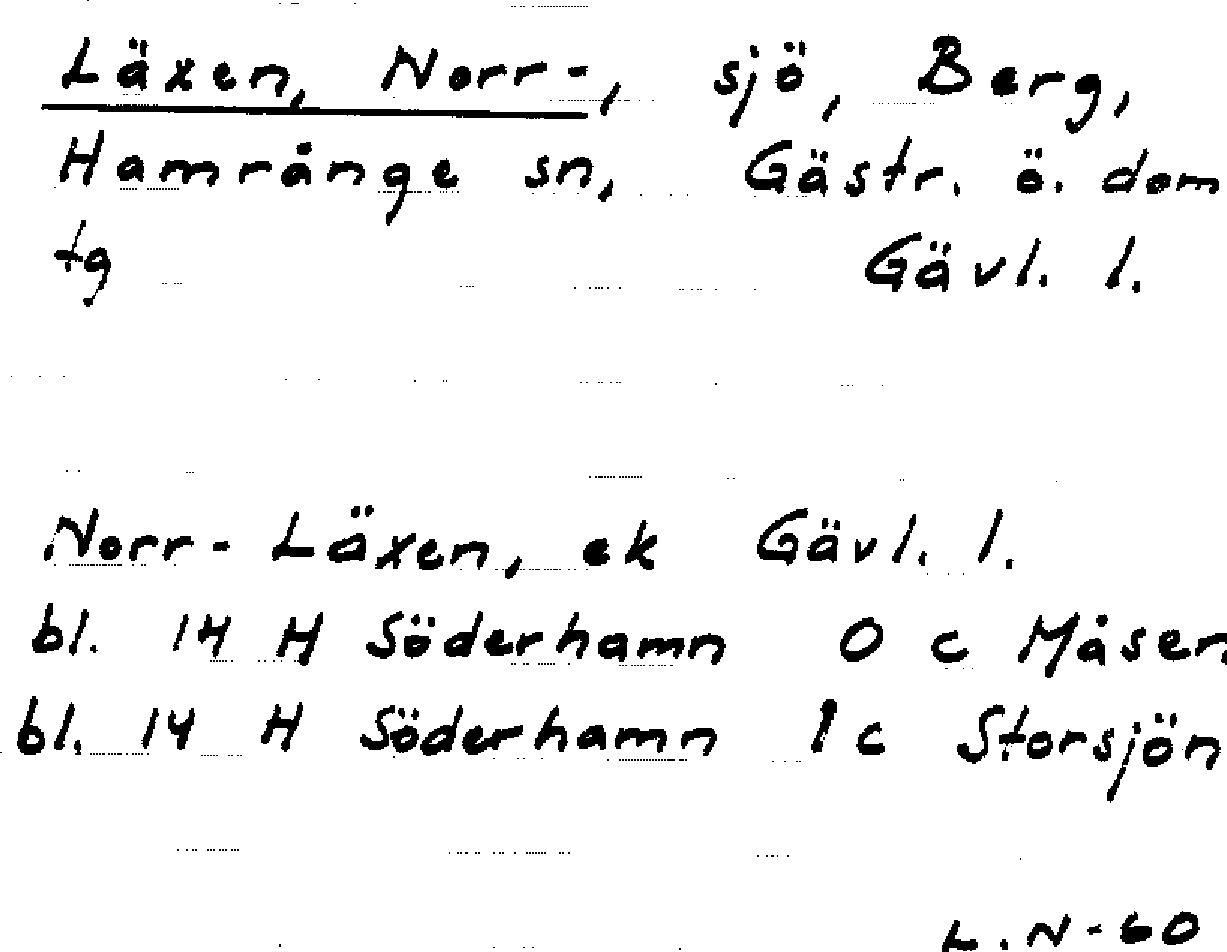 Läxen, Norr-, sjö, Berg,
Hamrånge sn, Gästr. ö. dom
tg Gävl. l.
Norr-Läxen, ek Gävl. l.
bl. 14 H Söderhamn 0 c Måsen
bl. 14 H Söderhamn 1 c Storsjön
L. N-60